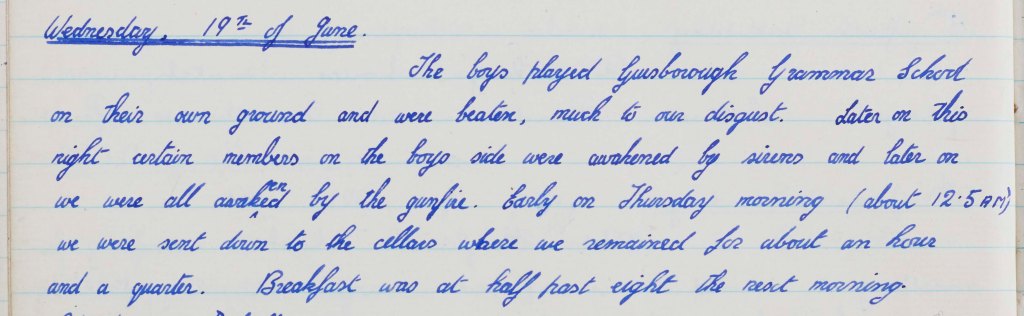 Wednesday, 19th of June.
The boys played Guisborough Grammar School
on their own ground and were beaten, much to our disgust. Later on this
night certain members on the boys side were awakened by sirens and later on
we were all awakened by the gunfire. Early on Thursday morning (about 12.5 AM)
we were sent down to the cellars where we remained for about an hour
and a quarter. Breakfast was at half past eight the next morning.